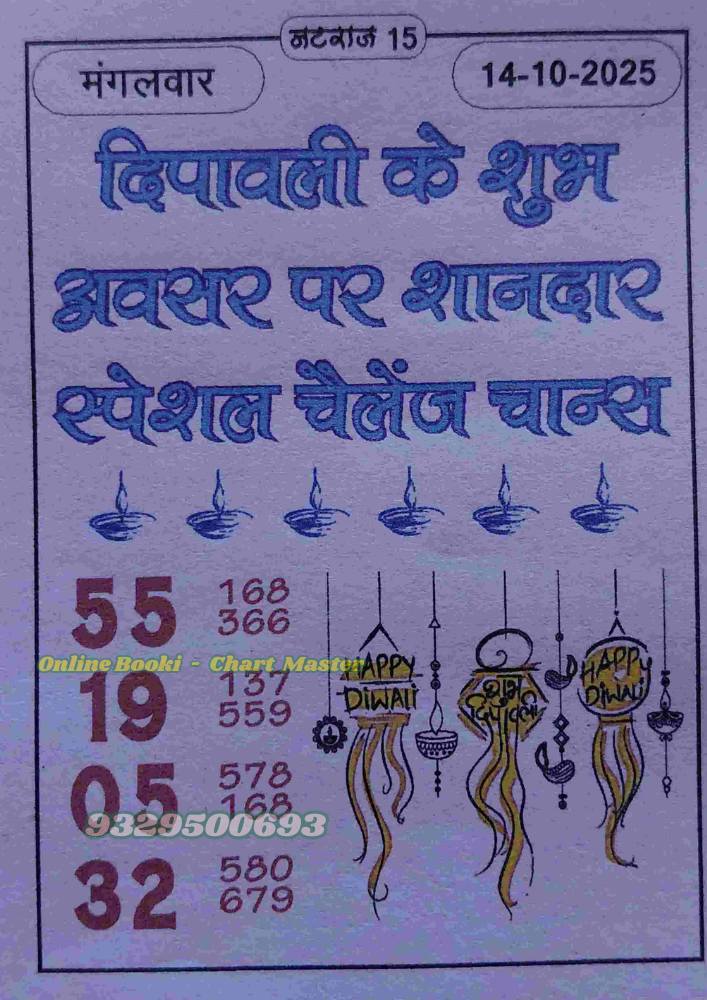 नटराज 15
मंगलवार
14-10-2025
दिपावली के शुभ
अवसर पर शानदार
स्पेशल चैलेंज चान्स
55 168
366
Online Booki - Chart Master
19 137
559
05 578
168
9329500693
32 580
679
HAPPY
DIWALI
शुभ
दिपावली
HAPPY
DIWALI